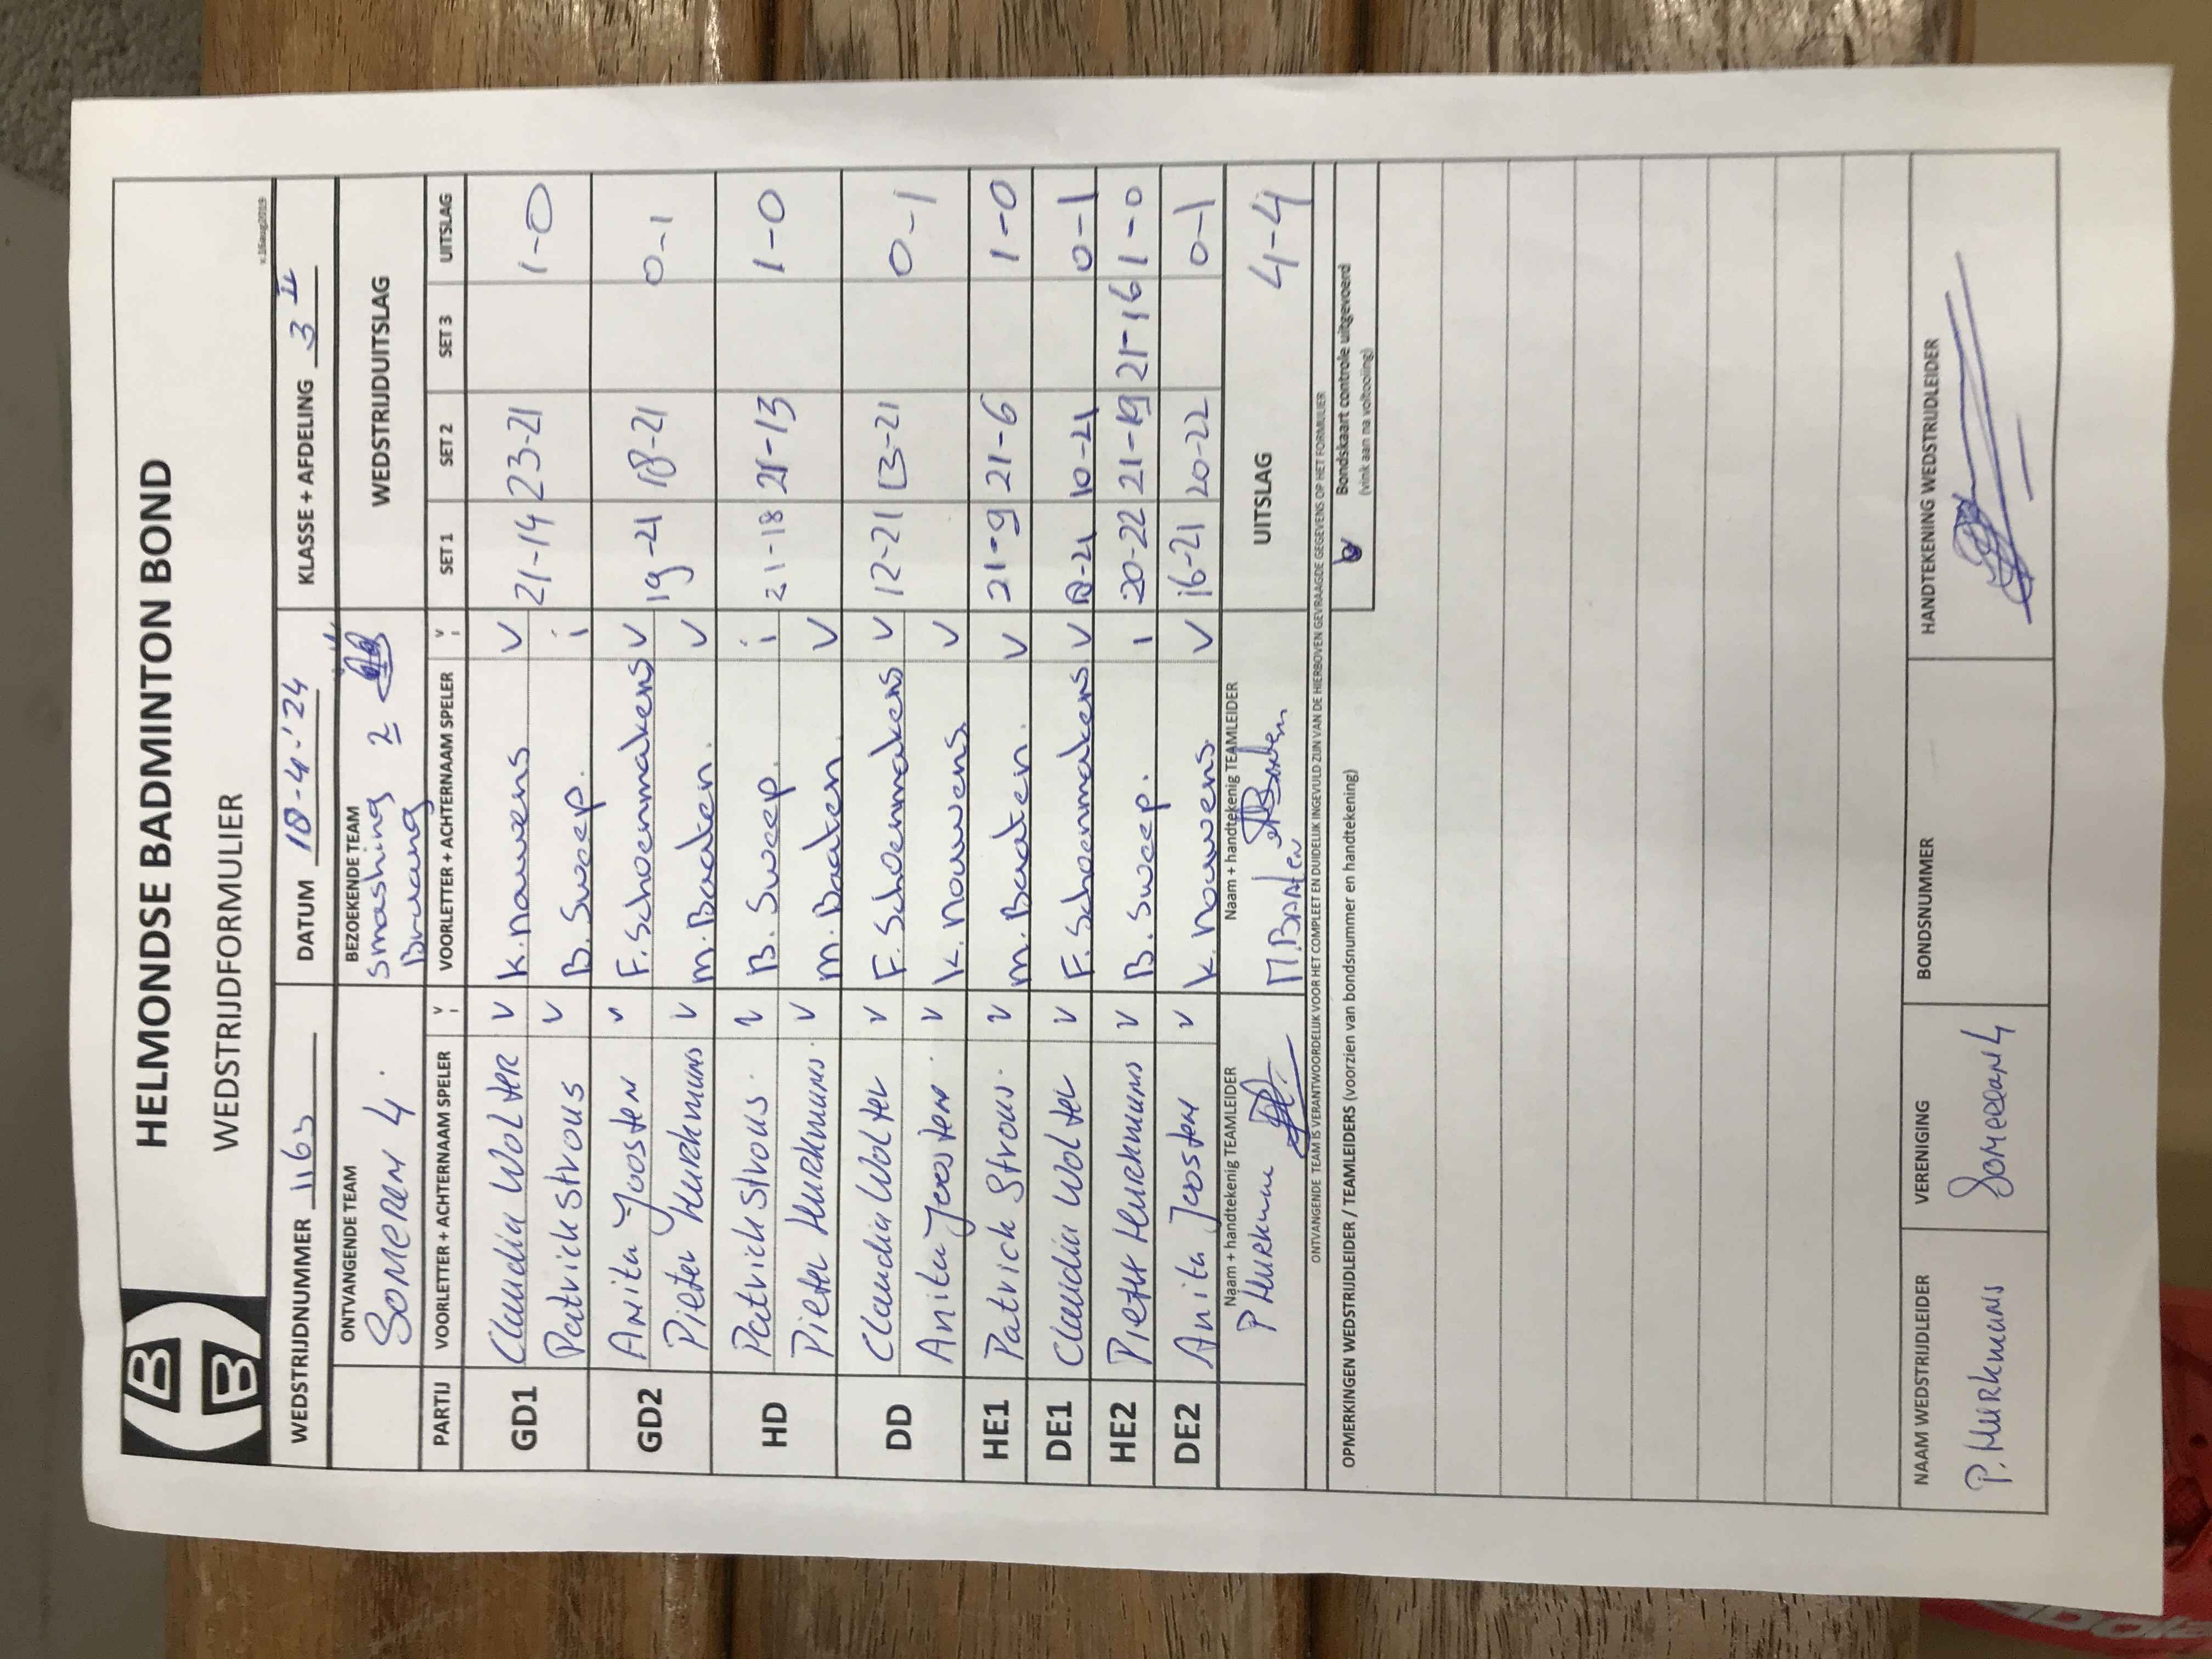 HELMONDSE BADMINTON BOND
WEDSTRIJDFORMULIER
v.16aug2019
WEDSTRIJDNUMMER 1163 DATUM 18-4-'24 KLASSE + AFDELING 3 II
ONTVANGENDE TEAM BEZOEKENDE TEAM WEDSTRIJDUITSLAG
SOMEREN 4. Smashing 2
Brwang
PARTIJ VOORLETTER + ACHTERNAAM SPELER V i VOORLETTER + ACHTERNAAM SPELER V i SET 1 SET 2 SET 3 UITSLAG
GD1 Claudia Wolter v K. Nouwens v 21-14 23-21 1-0
Patrick Strous v B. Sweep. i
GD2 Anita Joosten v F. Schoenmakers v 19-21 18-21 0-1
Pieter Hurkmans v M. Baaten. v
HD Patrick Strous. v B. Sweep. i 21-18 21-13 1-0
Pieter Hurkmans. v M. Baaten. v
DD Claudia Wolter v F. Schoenmakers v 12-21 13-21 0-1
Anita Joosten. v K. Nouwens. v
HE1 Patrick Strous. v M. Baaten. v 21-9 21-6 1-0
DE1 Claudia Wolter v F. Schoenmakers v 10-21 0-1
HE2 Pieter Hurkmans v B. Sweep. i 20-22 21-19 21-16 1-0
DE2 Anita Joosten v K. Nouwens. v 16-21 20-22 0-1
Naam + handtekenig TEAMLEIDER Naam + handtekenig TEAMLEIDER UITSLAG 4-4
P Hurkmans M. BAAten
ONTVANGENDE TEAM IS VERANTWOORDELIJK VOOR HET COMPLEET EN DUIDELIJK INGEVULD ZIJN VAN DE HIERBOVEN GEVRAAGDE GEGEVENS OP HET FORMULIER
OPMERKINGEN WEDSTRIJDLEIDER / TEAMLEIDERS (voorzien van bondsnummer en handtekening) Bondskaart controle uitgevoerd
(vink aan na voltooiing)
NAAM WEDSTRIJDLEIDER VERENIGING BONDSNUMMER HANDTEKENING WEDSTRIJDLEIDER
P. Hurkmans Someren 4